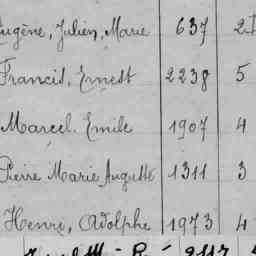 Eugène, Julien, Marie 637 2
Francis, Ernest 2238 5
Marcel, Emile 1907 4
Pierre Marie Auguste 1311 3
Henri, Adolphe 1973 4